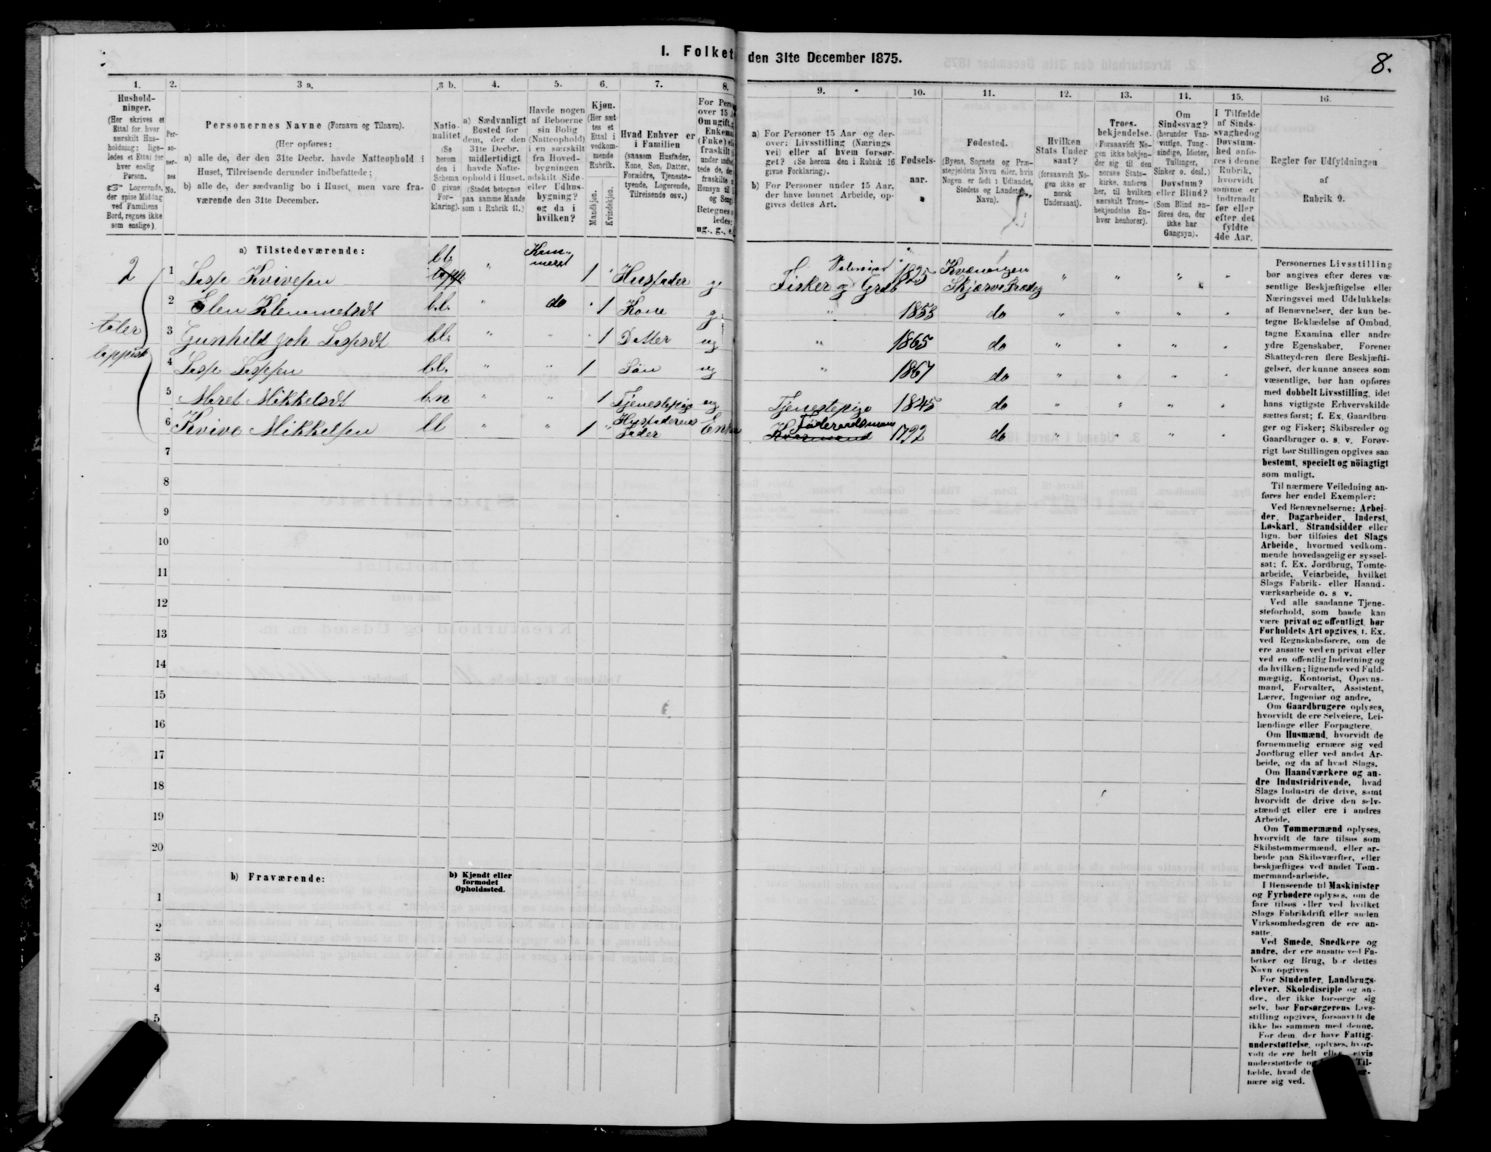 I. Folket
den 31te December 1875.
8.
1.
2.
3 a.
3 b.
4.
5.
6.
7.
8.
9.
10.
11.
12.
13.
14.
15.
16.
Hushold-
ninger.
(Her skrives et
Ettal for hver
særskilt Hus-
holdning; lige-
ledes et Ettal for
hver enslig
Person.
Logerende,
der spise Middag
ved Familiens
Bord, regnes ikke
som enslige).
Per-
so-
ner-
nes
No.
Personernes Navne (Fornavn og Tilnavn).
(Her opføres:
a) alle de, der den 31te Decbr. havde Natteophold i
Huset, Tilreisende derunder indbefattede;
b) alle de, der sædvanlig bo i Huset, men vare fra-
værende den 31te December.
Natio-
nalitet
(Se
herom
den i
Schema
C givne
For-
klaring).
a) Sædvanligt
Bosted for
dem, der den
31te Decbr.
midlertidigt
havde Natte-
ophold i Huset.
(Stedet betegnes
paa samme Maade
som i Rubrik 11.)
Havde nogen
af Beboerne
sin Bolig
(Natteophold)
i en særskilt
fra Hoved-
bygningen
adskilt Side-
eller Udhus-
bygning?
og da i
hvilken?
Kjøn.
(Her sæt-
tes et
Ettal i
vedkom-
mende
Rubrik.
Mandkjøn.
Kvindekjøn.
Hvad Enhver er
i Familien
(saasom Husfader,
Kone, Søn, Datter,
Forældre, Tjeneste-
tyende, Logerende,
Tilreisende osv.)
For Pers
over 15 A
Om ugift, g
Enkema
(Enke) el
fraskilt
a) For Personer 15 Aar og der-
over: Livsstilling (Nærings
vei) eller af hvem forsør-
get? (Se herom den i Rubrik 16
givne Forklaring).
b) For Personer under 15 Aar,
der have lønnet Arbeide, op-
gives dettes Art.
Fødsels-
aar.
Fødested.
(Byens, Sognets og Præ-
stegjeldets Navn eller, hvis
Nogen er født i Udlandet,
Stedets og Landets
Navn).
Hvilken
Stats Under
saat?
(forsaavidt No-
gen ikke er
norsk
Undersaat).
Troes-
bekjendelse.
(Forsaavidt No-
gen ikke bekjen-
der sig til den
norske Stats-
kirke, anføres
her, til hvilken
særskilt Troes-
bekjendelse En-
hver henhører).
Om
Sindssvag?
(herunder Van-
vittige, Tung-
sindige, Idioter,
Tullinger,
Sinker o. desl.)
Døvstum?
eller Blind?
(Som Blind an-
føres den, der
ikke har
Gangsyn).
I Tilfælde
af Sinds-
svaghed og
Døvstum-
hed anfø-
res i denne
Rubrik,
hvorvidt
samme er
indtraadt
før eller
efter det
fyldte
4de Aar.
Regler for Udfyldningen
af
Rubrik 9.
a) Tilstedeværende:
2
1 bl. 1 Husfader g Fisker og 1825 Kvænangen
Skjærvø
2 Elen b.l. do 1 Kone g 1853 do
3 bl. 1 Datter ug 1865 do
4 bl. 1 Søn ug 1867 do
5 Maret Mikkelsdt b.n 1 Tjenestepige ug Tjenestepige 1845 do
6 Mikkelsen bl 1 Husfaderens Fader Føderaadsmand 1792 do
7
8
9
10
11
12
13
14
15
16
17
18
19
20
b) Fraværende:
b) Kjendt eller
formodet
Opholdssted.
1
2
3
4
5
Personernes Livsstilling
bør angives efter deres væ-
sentlige Beskjæftigelse eller
Næringsvei med Udelukkelse
af Benævnelser, der kun be-
tegne Beklædelse af Ombud,
tagne Examina eller andre
ydre Egenskaber. Forener
Skatteyderen flere Beskjæfti-
gelser, der kunne ansees som
væsentlige, bør han opføres
med dobbelt Livsstilling, idet
hans vigtigste Erhvervskilde
sættes først; f. Ex. Gaardbru-
ger og Fisker; Skibsreder og
Gaardbruger o. s. v. Forøv-
rigt bør Stillingen opgives saa
bestemt, specielt og nøiagtigt
som muligt.
Til nærmere Veiledning an-
føres her endel Exempler:
Ved Benævnelserne: Arbei-
der, Dagarbeider, Inderst,
Løskarl, Strandsidder eller
lign. bør tilføies det Slags
Arbeide, hvormed vedkom-
mende hovedsagelig er syssel-
sat; f. Ex. Jordbrug, Tomte-
arbeide, Veiarbeide, hvilket
Slags Fabrik- eller Haand-
værksarbeide o. s. v.
Ved alle saadanne Tjene-
steforhold, som baade kan
være privat og offentligt, bør
Forholdets Art opgives, t. Ex.
ved Regnskabsførere, om de
ere ansatte ved en privat eller
ved en offentlig Indretning og
da hvilken; lignende ved Fuld-
mægtig, Kontorist, Opsyns-
mand, Forvalter, Assistent,
Lærer, Ingeniør og andre.
Om Gaardbrugere oplyses,
hvorvidt de ere Selveiere, Lei-
lændinge eller Forpagtere.
Om Husmænd, hvorvidt de
fornemmelig ernære sig ved
Jordbrug eller ved andet Ar-
beide, og da af hvad Slags.
Om Haandværkere og an-
dre Industridrivende, hvad
Slags Industri de drive, samt
hvorvidt de drive den selv-
stændigt eller ere i andres
Arbeide.
Om Tømmermænd oplyses,
hvorvidt de fare tilsøs som
Skibstømmermænd, eller ar-
beide paa Skibsværfter, eller
beskjæftiges ved andet Tøm-
mermandsarbeide.
I Henseende til Maskinister
og Fyrbødere oplyses, om de
fare tilsøs eller ved hvilket
Slags Fabrikdrift eller anden
Virksomhedsgren de ere an-
satte.
Ved Smede, Snedkere og
andre, der ere ansatte ved Fa-
briker og Brug, bør dettes
Navn opgives
For Studenter, Landbrugs-
elever, Skoledisciple og an-
dre, der ikke forsørge sig
selv, bør Forsørgerens Livs-
stilling opgives, forsaavidt de
ikke bo sammen med denne.
For dem, der have Fattig-
understøttelse, oplyses, hvor-
vidt de ere helt eller
understøttede
nære sig ved.